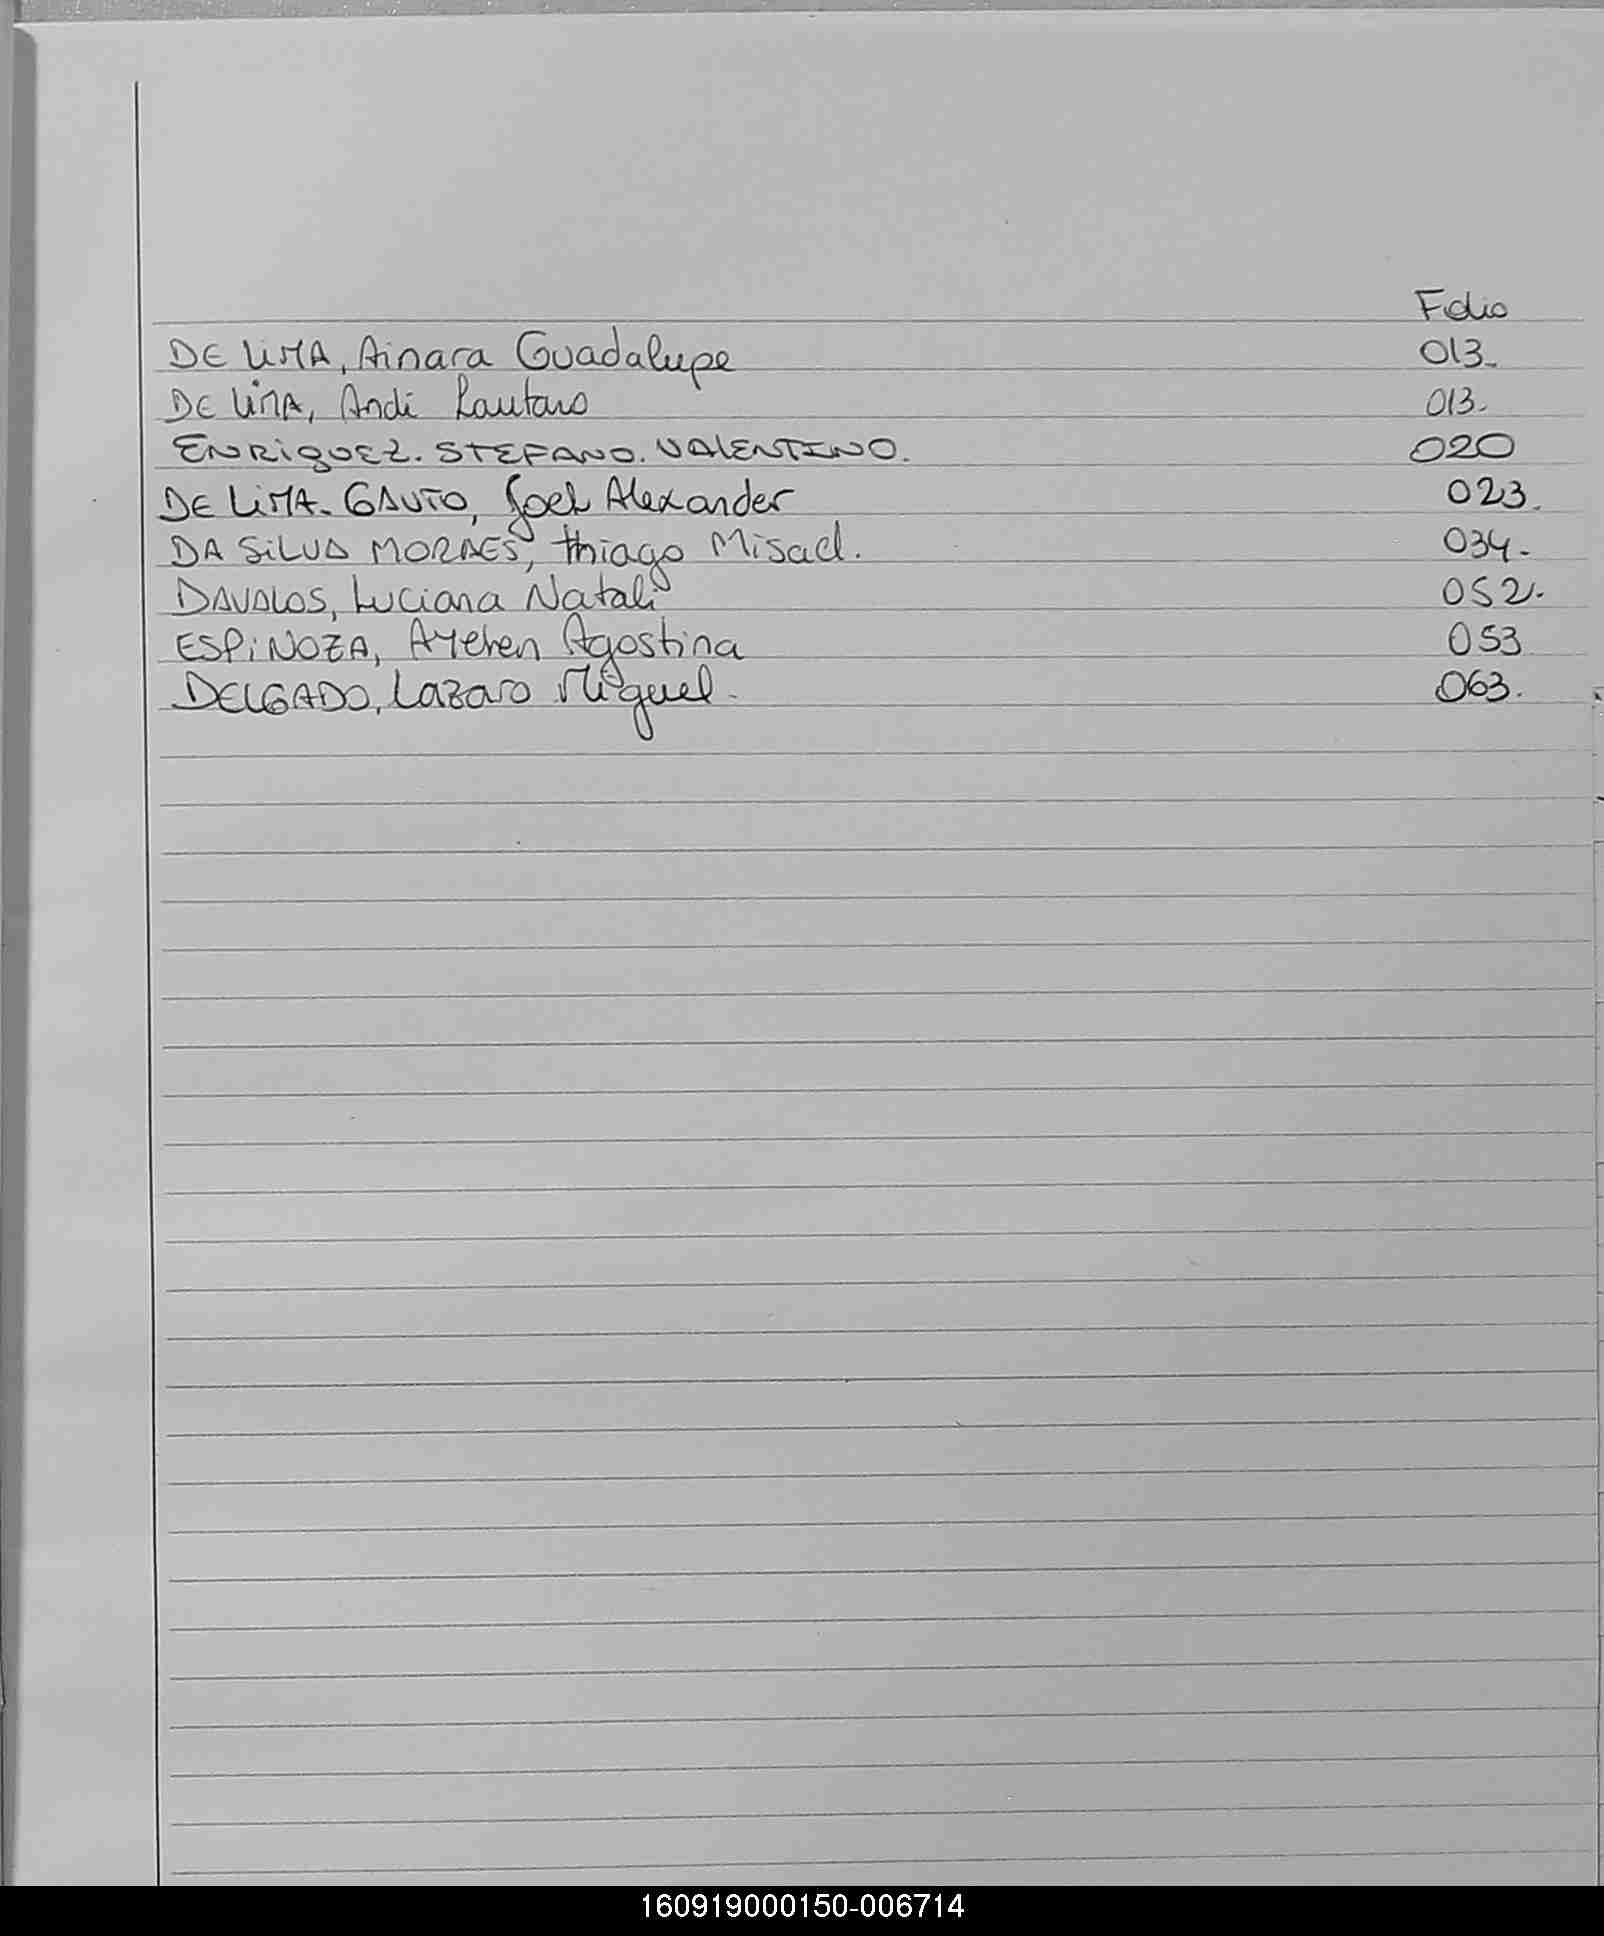 Folio
DE LIMA, Ainara Guadalupe 013.
DE LIMA, Andi Lautaro 013.
ENRIQUEZ. STEFANO. VALENTINO. 020
DE LIMA-GAUTO, Joel Alexander 023.
DA SILVA MORAES, Thiago Misael. 034.
DAVALOS, Luciana Natali 052.
ESPINOZA, Ayelen Agostina 053
DELGADO, Lazaro Miguel. 063.
160919000150-006714